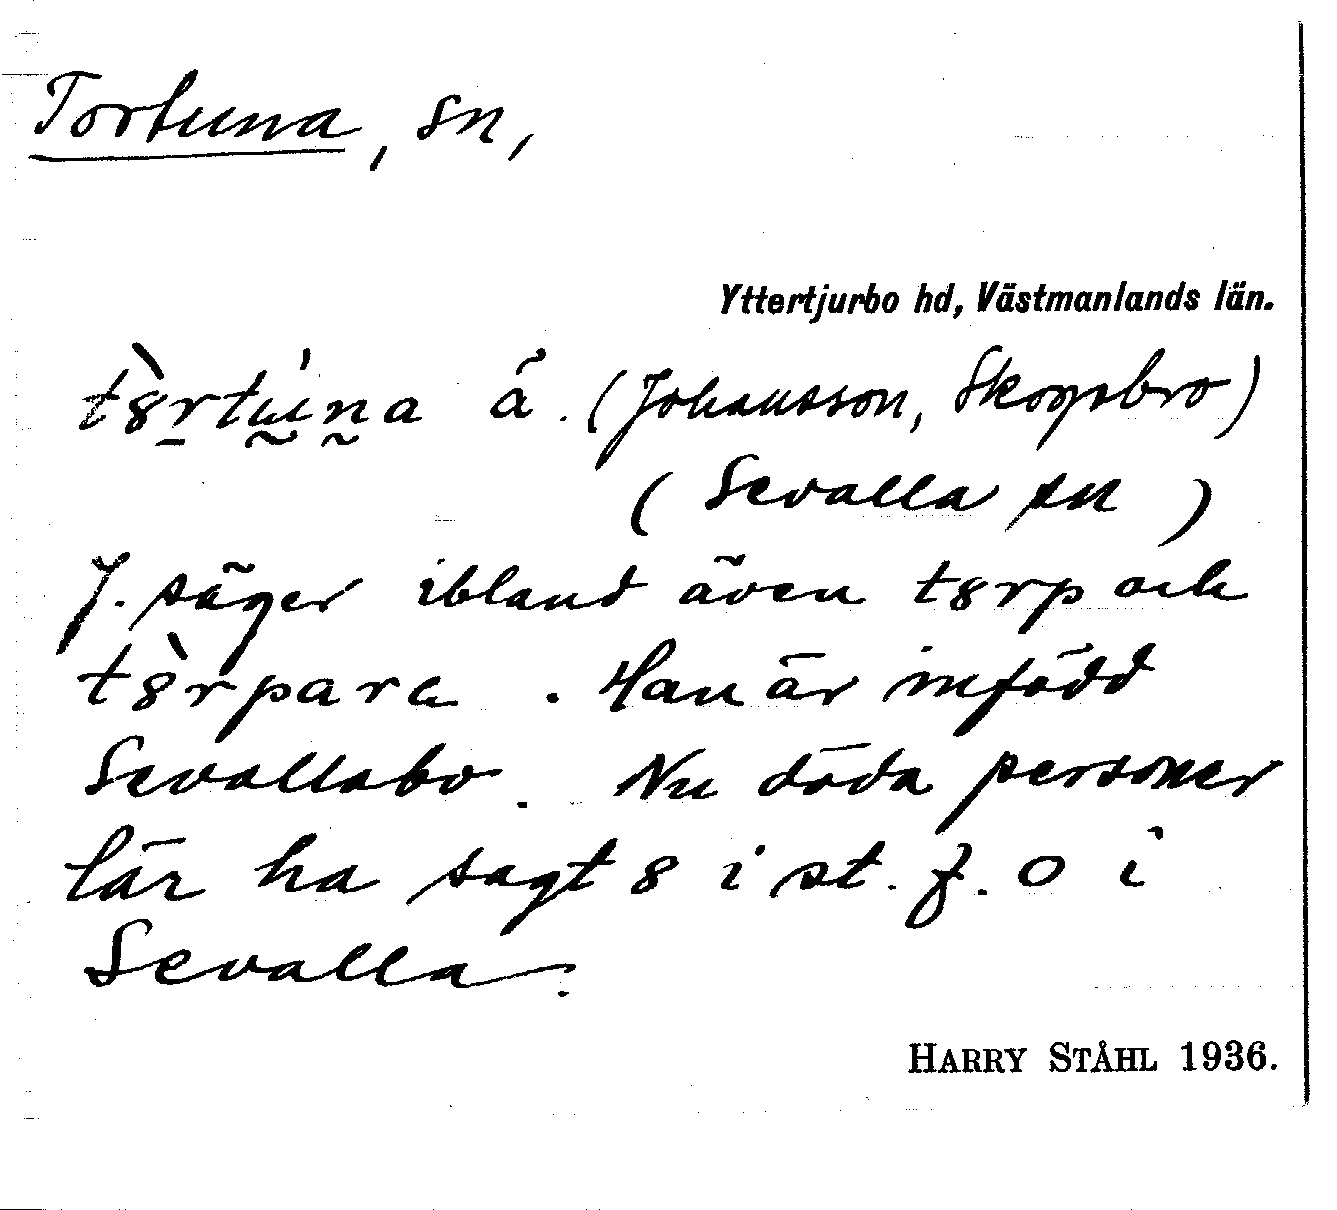 Tortuna, sn,
Yttertjurbo hd, Västmanlands län.
t8̀rtṵ´n̰a ä. (Johansson, Skogsbro)
(Sevalla sn)
J. säger ibland även t8rp och
t8̀rpara. Han är infödd
Sevallabo. Nu döda personer
lär ha sagt 8 i st. f. o i
Sevalla.
HARRY STÅHL 1936.